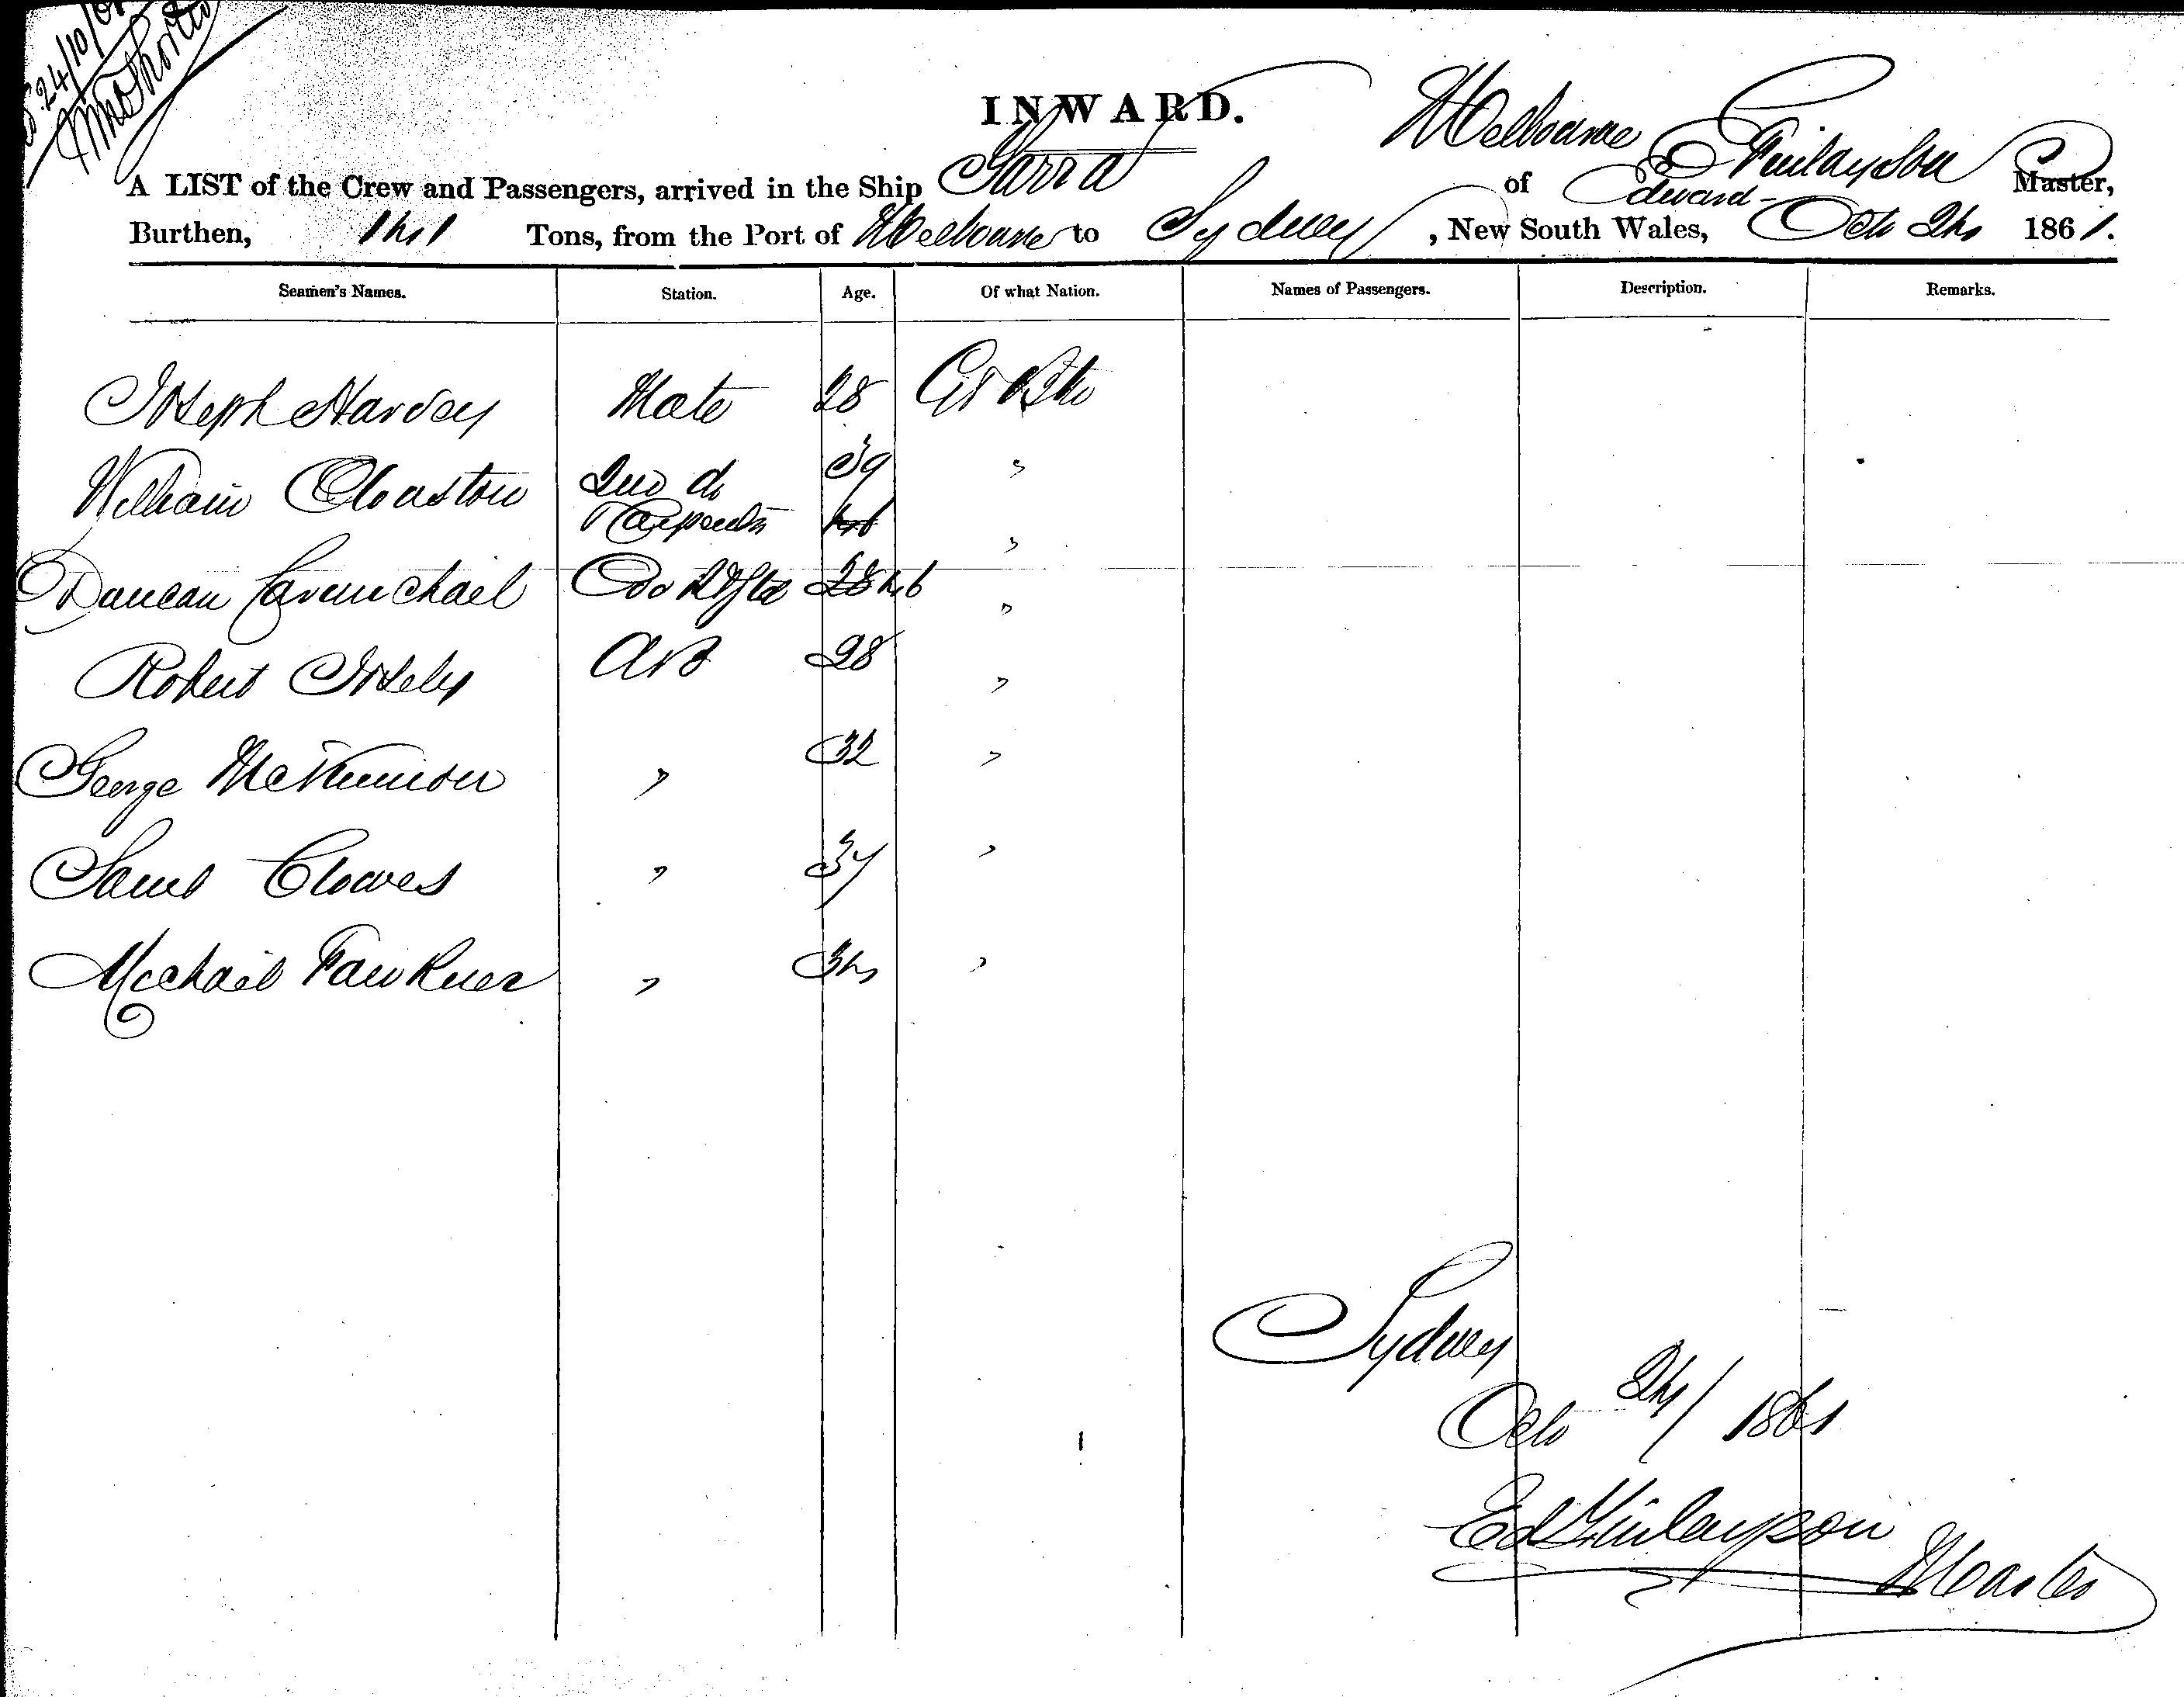 24/10/61
INWARD.
A LIST of the Crew and Passengers, arrived in the Ship Yarra of Melbourne Edward Finlayson Master,
Burthen, 141 Tons, from the Port of Melbourne to Sydney, New South Wales, Octo 24 1861.
Seamen's Names. Station. Age. Of what Nation. Names of Passengers. Description. Remarks.
Joseph Harvey Mate 28 Gt Btn
William Clouston 2nd do 39 "
Carpenter 46 "
Duncan Carmichael Cook & Std 28 46 "
Robert AB 28 "
George McKinnon " 32 "
Saml Clowes " 37 "
Michael Fawkner " 34 "
Sydney
Octo 24/1861
Ed Finlayson
Master